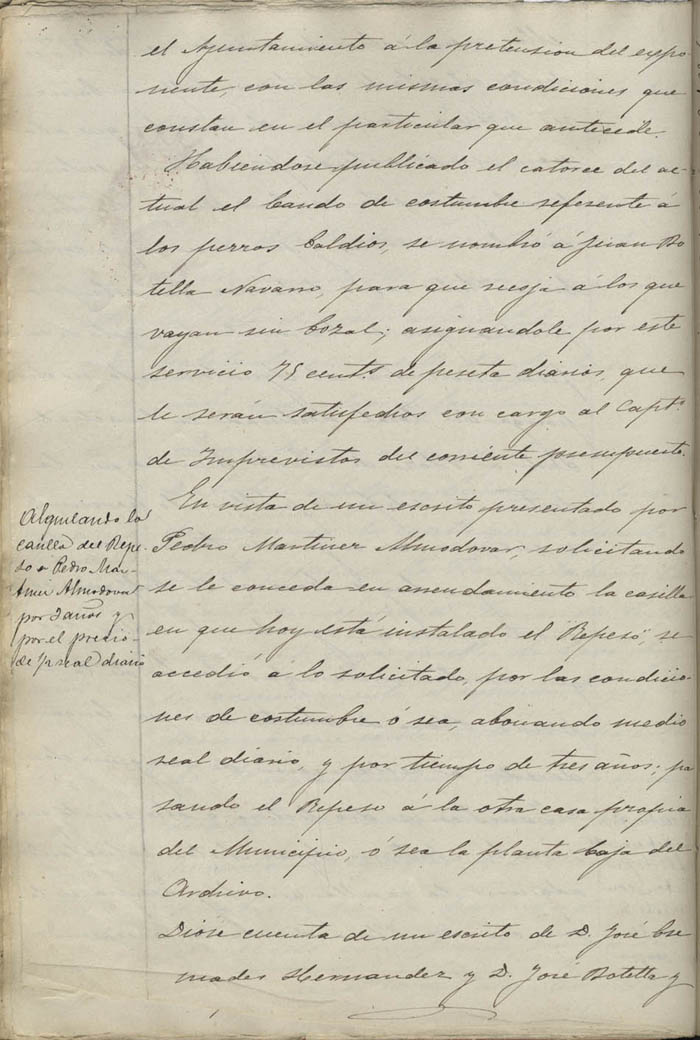 el Ayuntamiento á la pretension del expo-
nente, con las mismas condiciones que
constan en el particular que antecede.
Habiendose publicado el catorce del ac-
tual el bando de costumbre referente á
los perros baldios, se nombró á Juan Bo
tella Navarro, para que recoja á los que
vayan sin bozal; asignandole por este
servicio 75 cents. de peseta diarios, que
le serán satisfechos con cargo al Capto.
de Imprevistos del corriente presupuesto.
En vista de un escrito presentado por
Pedro Martinez Almodovar, solicitando
se le conceda en arrendamiento la casilla
en que hoy está instalado el "Repeso", se
accedió á lo solicitado, por las condicio-
nes de costumbre ó sea, abonando medio
real diario, y por tiempo de tres años; pa
sando el Repeso á la otra casa propia
del Municipio, ó sea la planta baja del
Archivo.
Diose cuenta de un escrito de D. José Cre
mades Hernandez y D. José Botella y
Alquilando la
casilla del Repe-
so a Pedro Mar-
tinez Almodovar
por 3 años y
por el precio
de ½ real diario